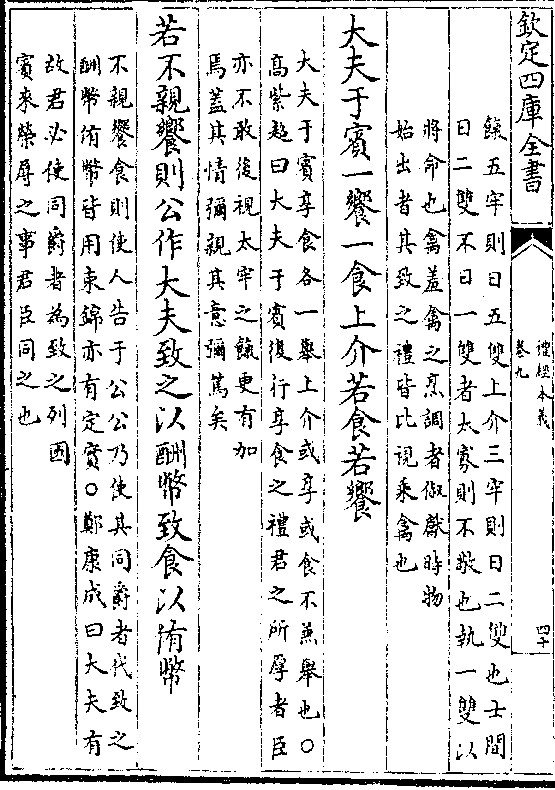 欽定四庫全書
禮經本義
卷九
四十
餼五牢則日五雙上介三牢則日二雙也士間
日二雙不曰一雙者太寡則不敬也執一雙以
將命也禽羞禽之烹調者俶獻時物
始出者其致之禮皆比視乘禽也
大夫于賓一饗一食上介若食若饗
大夫于賓享食各一舉上介或享或食不兼舉也○
高紫超曰大夫于賓復行享食之禮君之所厚者臣
亦不敢後視太牢之餼更有加
焉蓋其情彌親其意彌篤矣
若不親饗則公作大夫致之以酬幣致食以侑幣
不親饗食則使人告于公公乃使其同爵者代致之
酬幣侑幣皆用束錦亦有定實○鄭康成曰大夫有
故君必使同爵者為致之列國
賓來榮辱之事君臣同之也